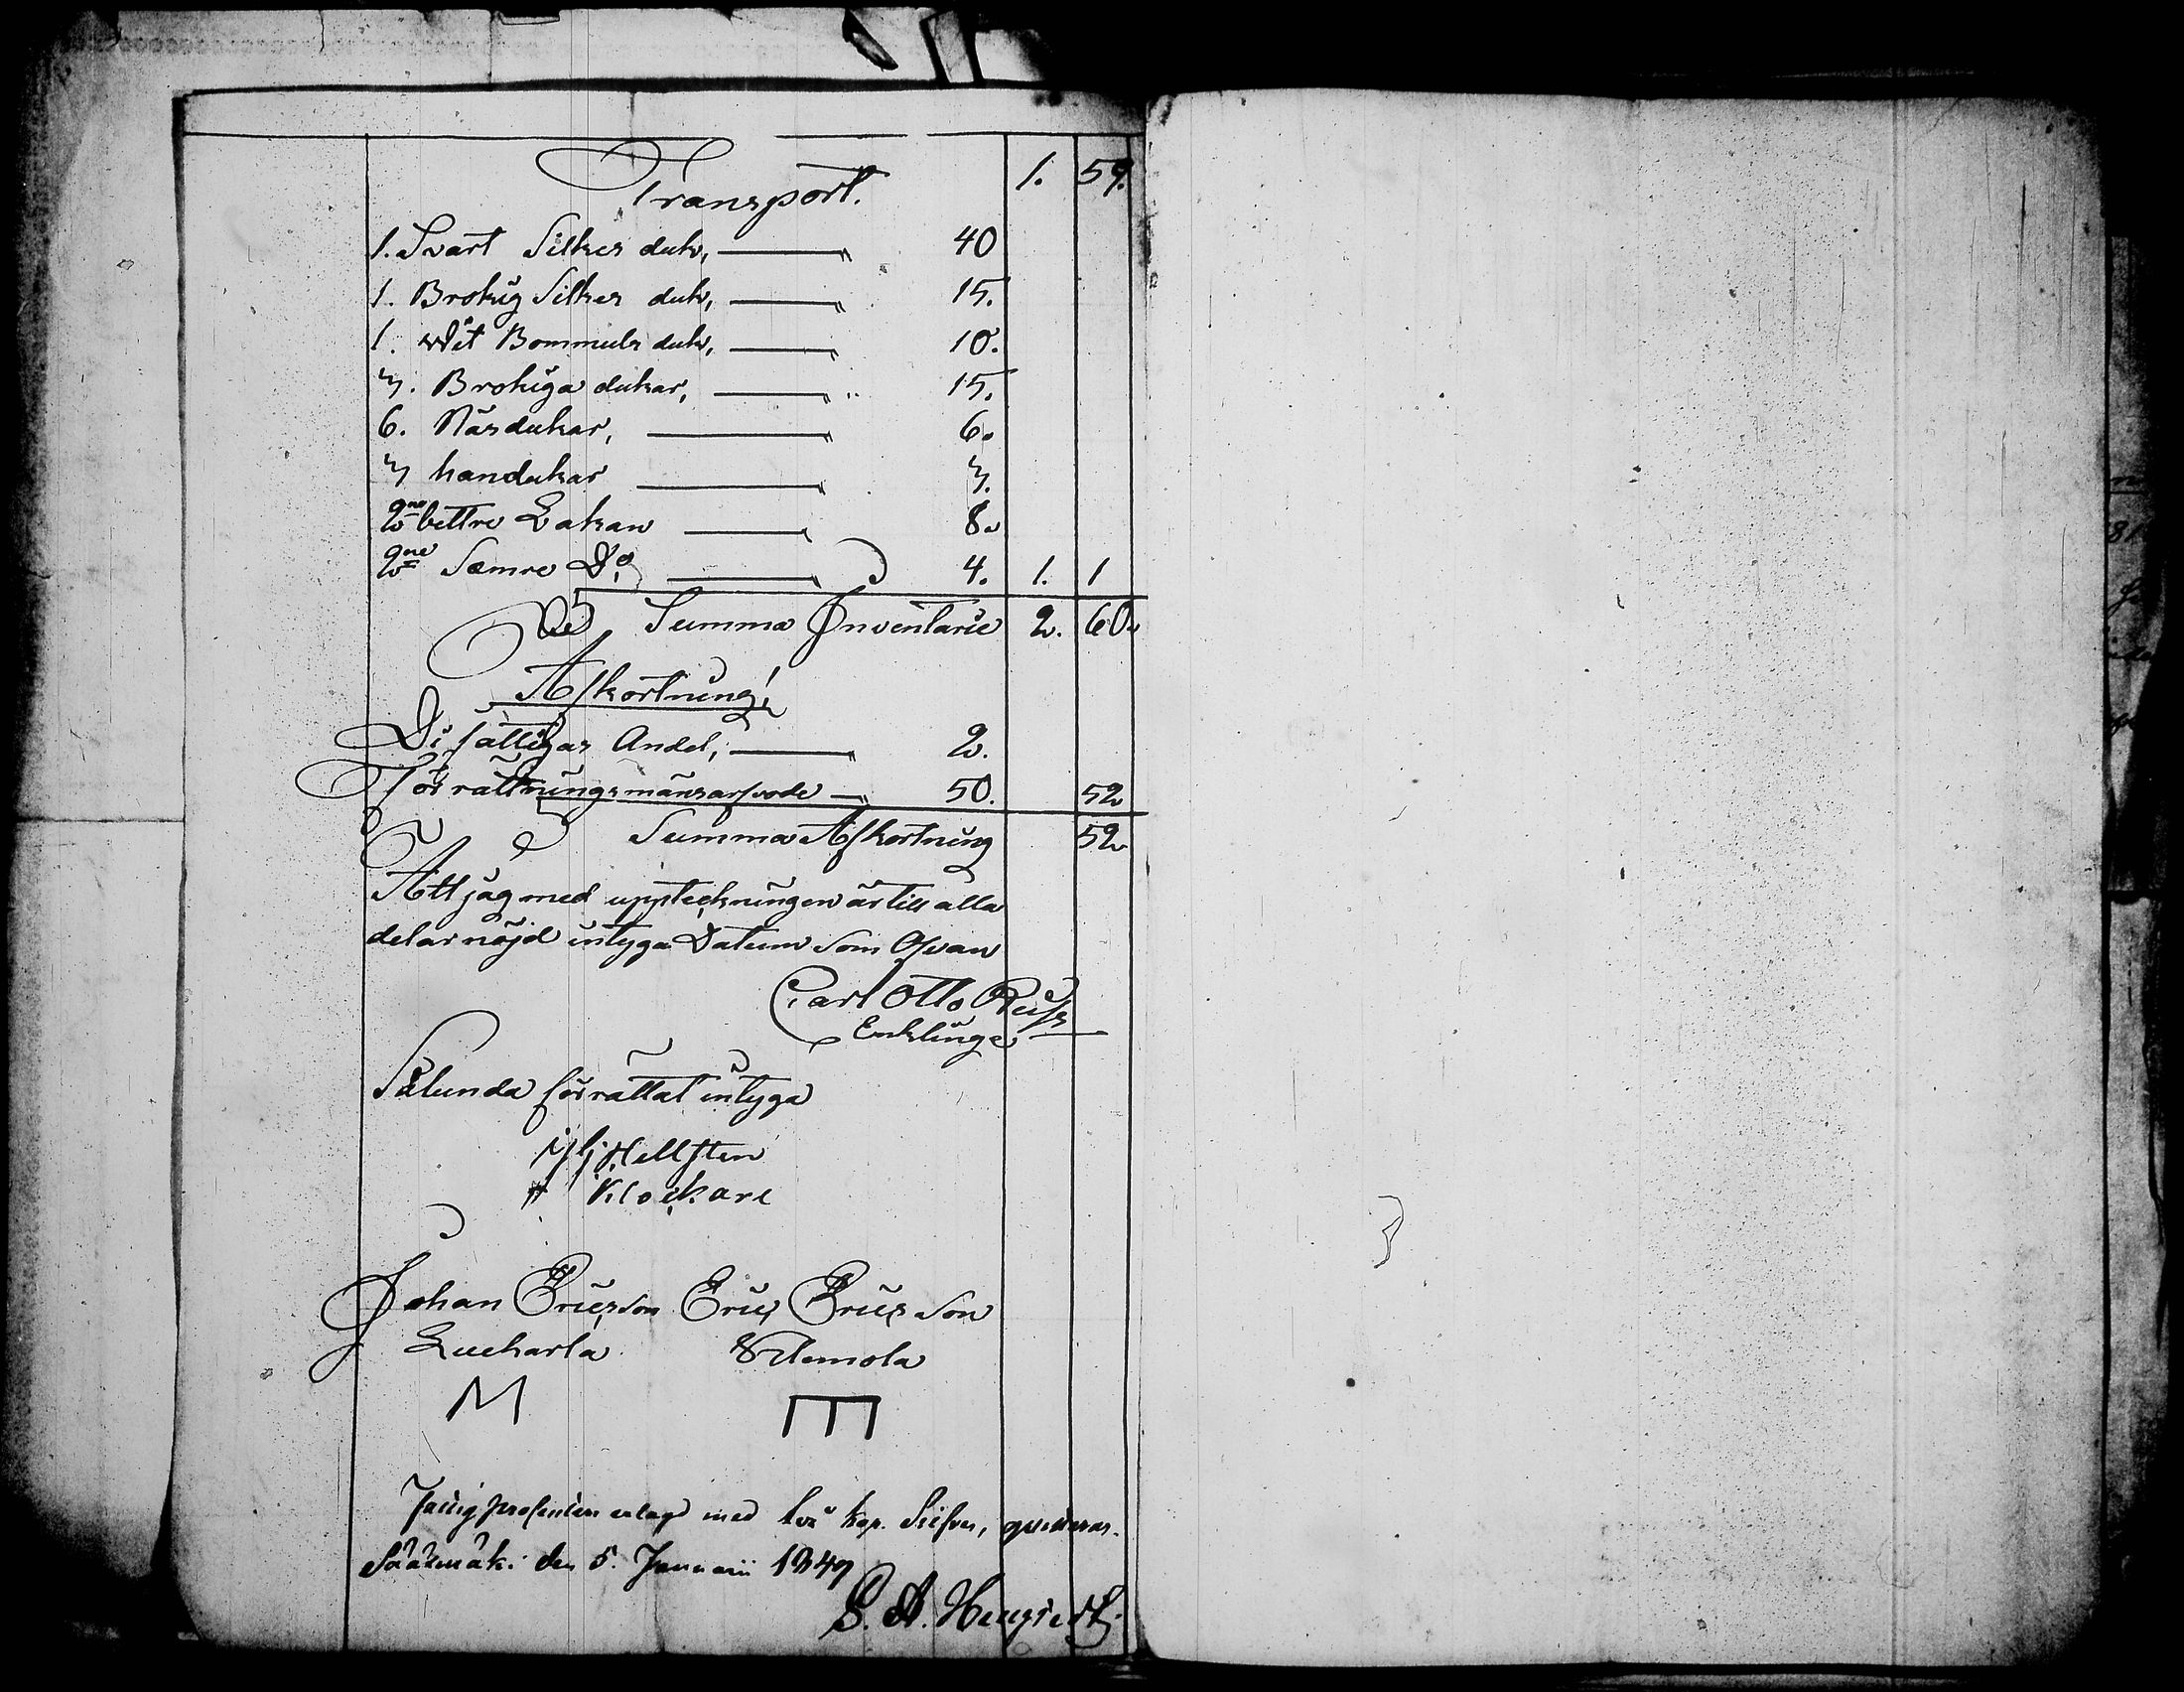 Transport. 1. 59.
1. Svart Silkes duk, 40
1. Brokig Silkes duk, 15.
1. Wit Bommuls duk, 10.
3. Brokiga dukar, 15.
6. Näsdukar, 6.
3 handukar 3.
2ne bettre Lakan 8.
2ne Sæmre Do 4. 1. 1
Summa Inventarie 2. 60.
Afkortning,
Di fattigas Andel, 2.
Förrättningsmänsarfvode 50. 52
Summa Afkortning 52
Att jag med uppteckningen är till alla
delar nöjd intyga Datum som Ofvan
Carl Otto Russ
Enklinge
Sålunda förrättat intyga
Hellsten
Klockare
Johan Ericsson Eric Ericsson
Lucharla Nemola
M E
erlagd med två kop. Silfver, qvitteras.
Sääxmäki den 5. Januarii 1849